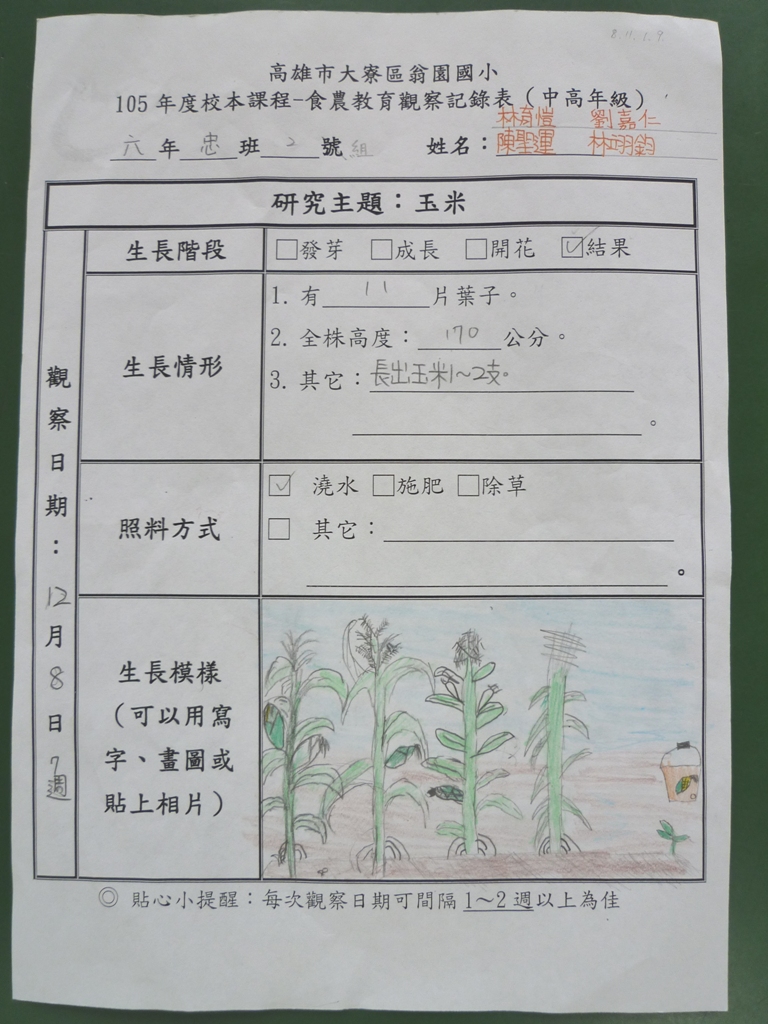 8.11.1.9.
高雄市大寮區翁園國小
105 年度校本課程-食農教育觀察記錄表（中高年級）
六年忠班2號組 姓名：林育愷 劉嘉仁
陳聖運 林翊鈞
研究主題：玉米
觀察日期：12月8日7週
生長階段 □發芽 □成長 □開花 ☑結果
生長情形
1. 有 11 片葉子。
2. 全株高度：170 公分。
3. 其它：長出玉米1～2支。
。
照料方式
☑ 澆水 □施肥 □除草
□ 其它：
。
生長模樣
（可以用寫
字、畫圖或
貼上相片）
◎ 貼心小提醒：每次觀察日期可間隔 1～2 週以上為佳